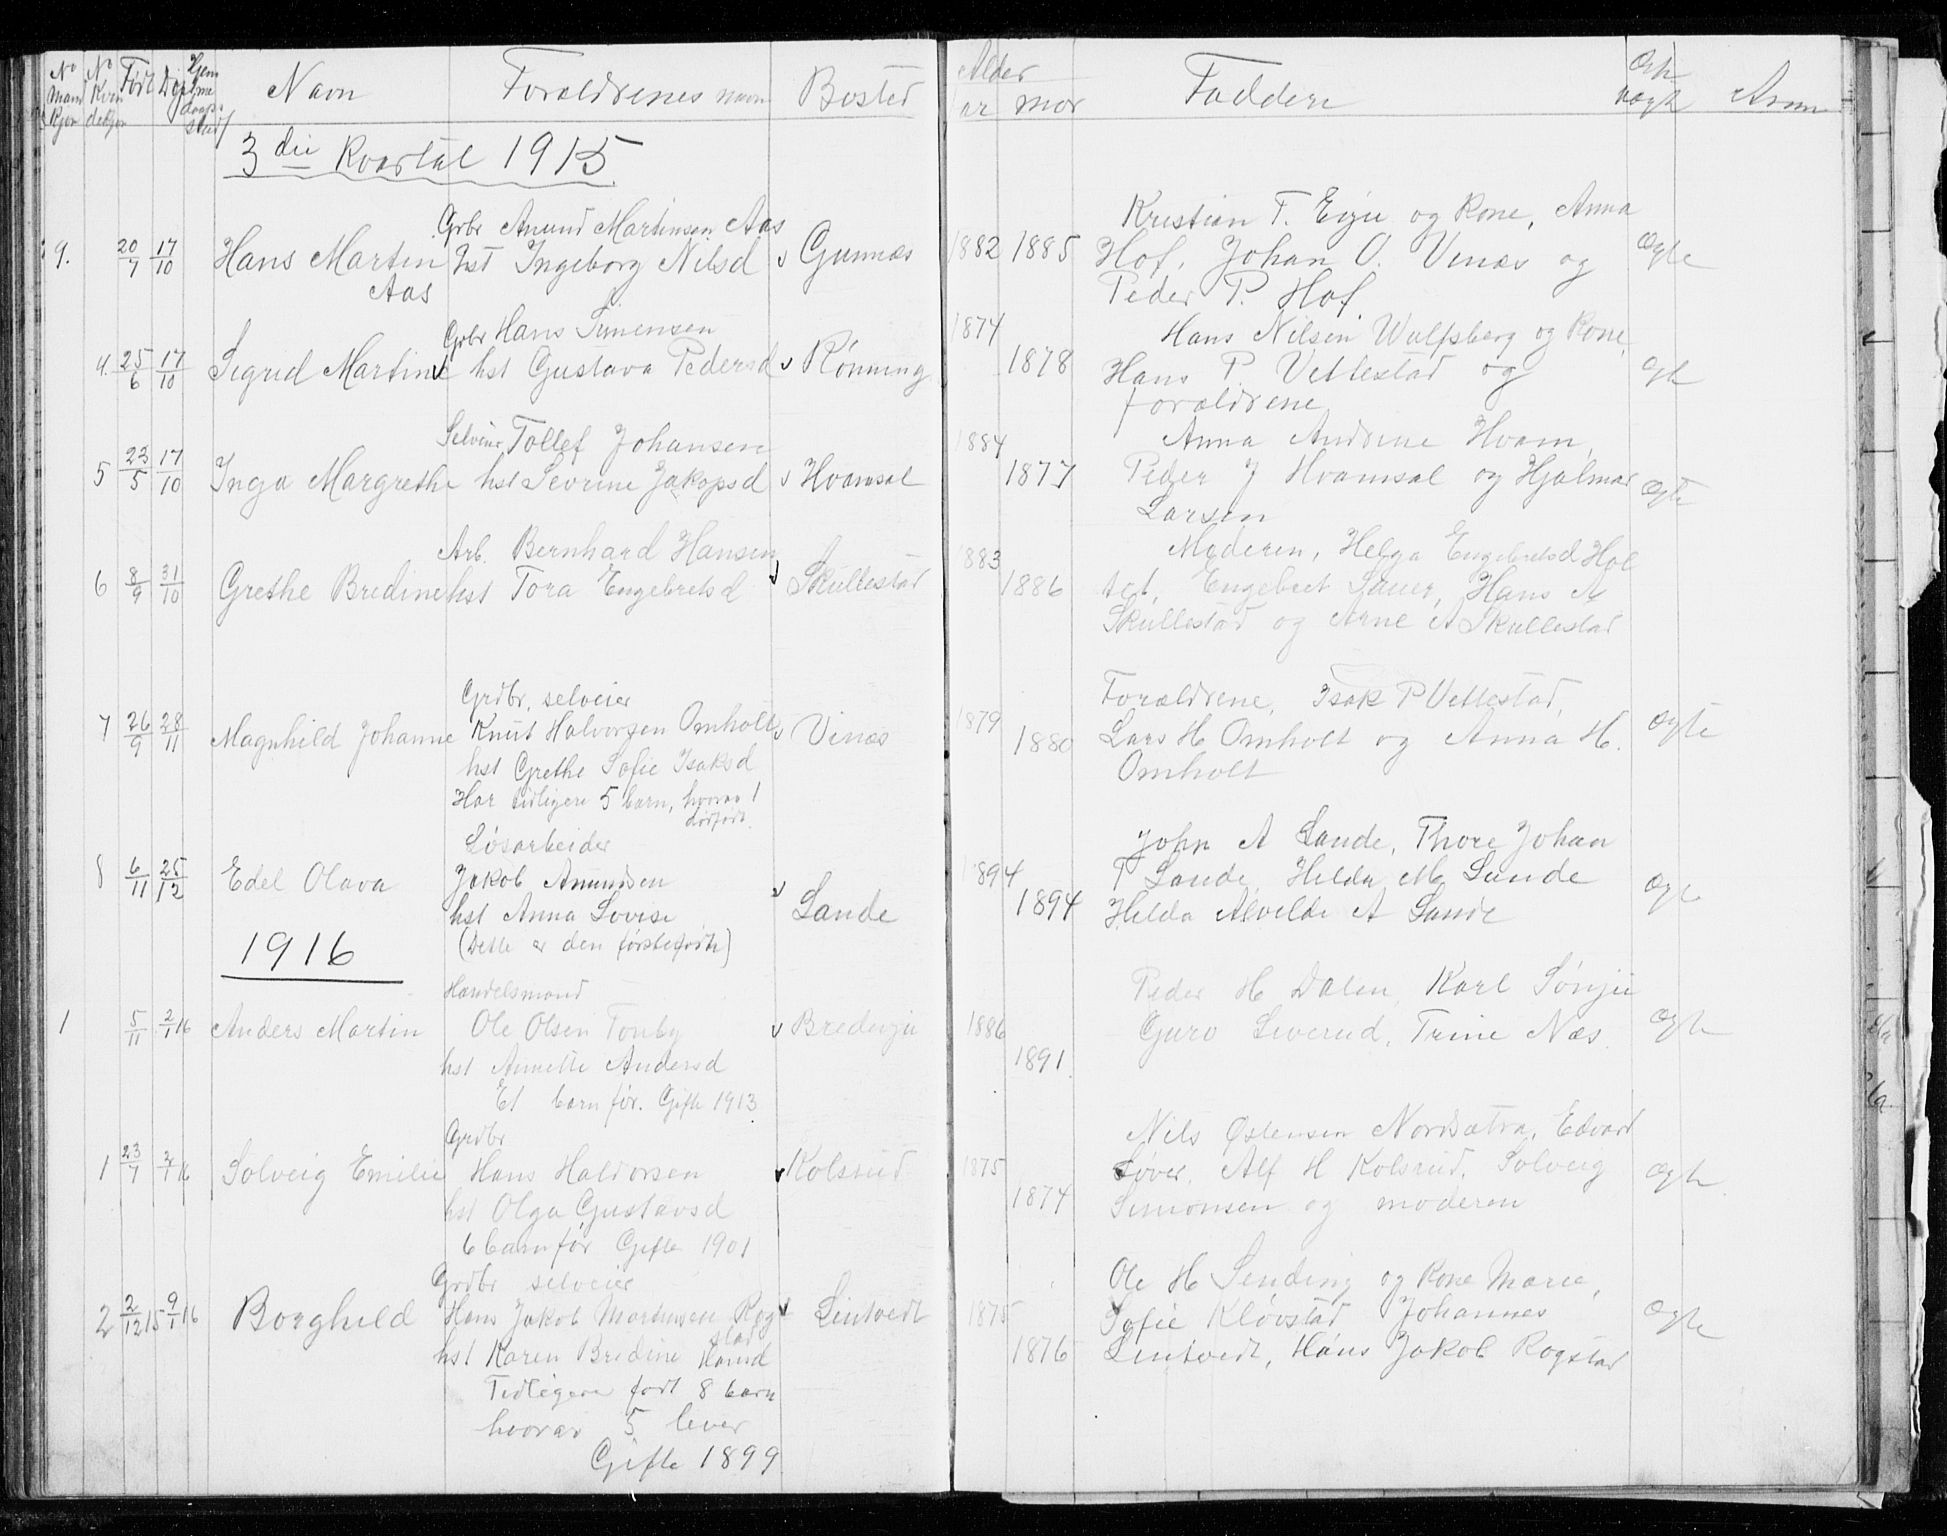 No Mand kjøn No Kvin dekjøn Født Døpt Hjem Navn Forældrenes navn Bosted Alder far mor Faddere Ægte uægte Anm
3die Kvartal 1915
Grbr Amund Martinsen Aas Kristian T. Eiju og kone, Anna
9. 20/7 17/10 Hans Martin hst Ingeborg Nilsd Gunnæs 1882 1885 Hof, Johan O. Vinæs og Ægte
Aas Peder P. Hof
Grbr Hans Simensen 1874 Hans Nilsen Wulfsberg og kone,
4. 25/6 17/10 Sigrid Martine hst Gustava Pedersd Rønning 1878 Hans P. Vellestad og Egte
forældrene
Selveier Tollef Johansen 1884 Anna Andrine Hvam,
5 23/5 17/10 Inga Margrethe hst Sevrine Jakopsd Hvamsal 1877 Peder J Hvamsal og Hjalmar Ægte
Larsen
Arb. Bernhard Hansen 1883 Moderen, Helga Engebretsd Hol
6 8/9 31/10 Grethe Bredine hst Tora Engebretsd Skullestad 1886 tet, Engebret Sauer, Hans A
Skullestad og Arne A Skullestad
Grdbr, selveier Forældrene, Isak P Vellestad,
7 26/9 28/11 Magnhild Johanne Knut Halvorsen Omholt Vinæs 1879 1880 Lars H Omholt og Anna H. Ægte
hst Grethe Sofie Isaksd Omholt
Har tidligere 5 barn, hvorav 1
dødfødt.
Løsarbeider John A Sande, Thore Johan
8 6/11 25/12 Edel Olava Jakob Amundsen 1894 T Sande, Hilda M. Sande Ægte
hst Anna Lovise Sande 1894 Hilda Alvilde A Sande
1916 (Dette er den førstefødte)
Handelsmand Peder H Dalen, Karl Sønju
1 5/11 2/1 16 Anders Martin Ole Olsen Tonby Bredvju 1886 Guro Siverud, Trine Næs. Ægte
hst Annette Andersd 1891
Et barn før. Gifte 1913
Grdbr Nils Østensen Nordsætra, Edvart
1 23/7 2/1 16 Solveig Emilie Hans Haldorsen Kolsrud 1875 Løver, Alf H Kolsrud, Solveig Ægte
hst Olga Gustavsd 1874 Simonsen og moderen
6 barn før Gifte 1901
Grdbr selveier Ole H Sending og kone Marie,
2 2/12 15 9/1 16 Borghild Hans Jakob Martinsen Rog Lintvedt 1875 Sofie Kløvstad Johannes Ægte
stad
hst Karen Bredine Hansd 1876 Lintvedt, Hans Jakob Rogstad
Tidligere født 8 barn
hvorav 5 lever
Gifte 1899